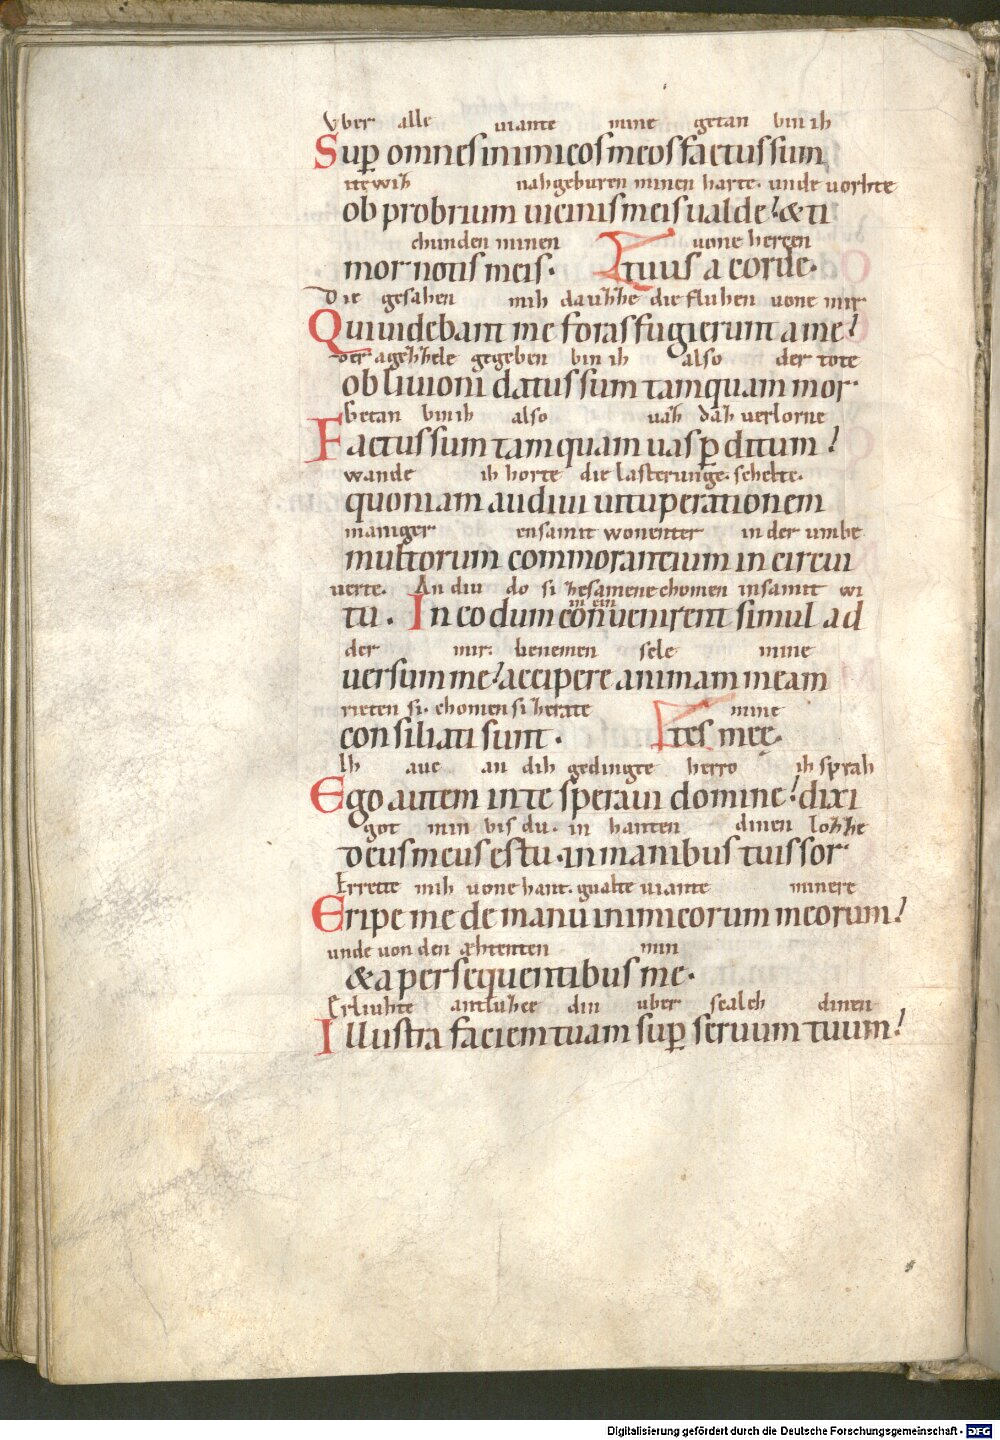 Vber alle viante mine getan bin ih
Sup omnes inimicos meos factus sum
itewiz nahgeburen minen harte. unde vorhte
obprobrium uicinis meis ualde! & ti
chunden minen vone hercen
mor notis meis. tuus a corde.
Die gesahen mih duzze die fluhen vone mir
Qui uidebant me foras fugierunt a me!
der agezzele gegeben bin ih also der tote
obliuioni datus sum tamquam mor
Getan bin ih also vaz daz verlorne
Factus sum tamquam uas pditum!
wande ih horte die lasterunge. schelte.
quoniam audiui uituperationem
maniger ensamit wonenter in der umbe
multorum commorantium in circui
verte. An diu do si zesamene chomen insamit wi
tu. In eo dum conuenirent simul ad
in ein
der mir. benemen sele mine
uersum me! accipere animam meam
rieten si. chomen si zerate mine
consiliati sunt. tes meę.
Ih ave an dih gedingte herro ih sprah
Ego autem in te speraui domine! dixi
got min bis du. in hanten dinen lozze
deus meus es tu. in manibus tuis sor
Errette mih vone hant. gualte viante minere
Eripe me de manu inimicorum meorum!
unde von den æhtenten min
& a persequentibus me.
Erliuhte antluzce din uber scalch dinen
Illustra faciem tuam sup seruum tuum!
Digitalisierung gefördert durch die Deutsche Forschungsgemeinschaft - DFG